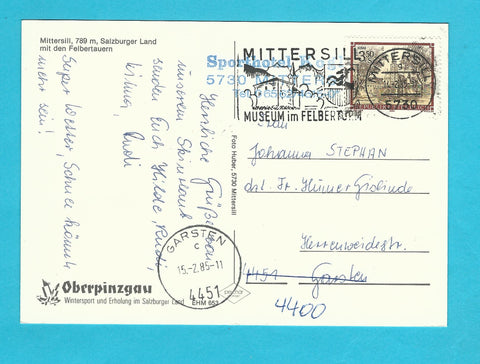 Mittersill, 789 m, Salzburger Land
mit den Felbertauern
Herzliche Grüße von
unserem Skiurlaub
senden Euch Hilde, Rudi,
Rudi
Super Wetter, Schnee könnte
mehr sein!
Oberpinzgau
Wintersport und Erholung im Salzburger Land
Foto Huber, 5730 Mittersill
Sporthotel
5730 MITTER
MITTERSILL
MUSEUM im FELBERTURM
MITTERSILL
5730
Johanna STEPHAN
Herrenweidestr.
4451 Garsten
4400
GARSTEN
c
15.-2.85-11
4451
EHM 653